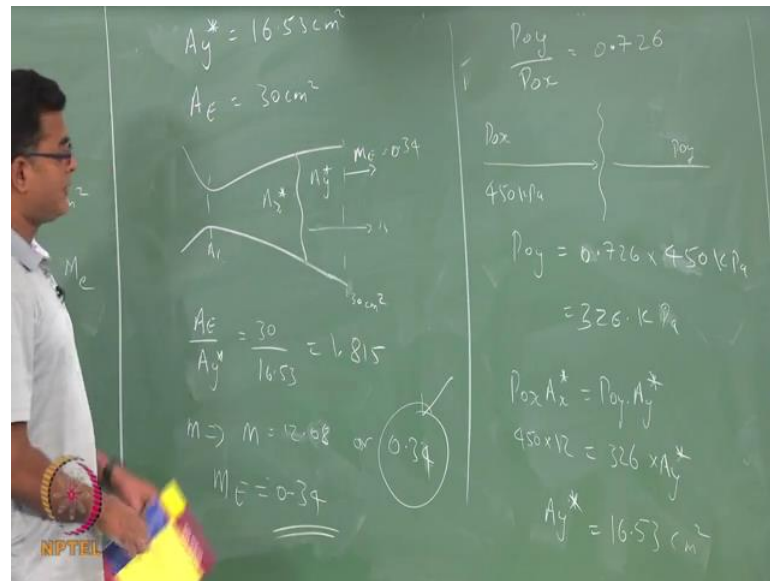 Ay* = 16.53 cm²
A_E = 30 cm²
M_E = 0.34
Ax*
Ay*
30 cm²
A_E/Ay* = 30/16.53 = 1.815
m ⇒ M = 12.08 or 0.34
M_E = 0.34
M_e
Poy/Pox = 0.726
Pox
Poy
450 kPa
Poy = 0.726 × 450 kPa
= 326. kPa
Pox Ax* = Poy. Ay*
450 × 12 = 326 × Ay*
Ay* = 16.53 cm²
NPTEL